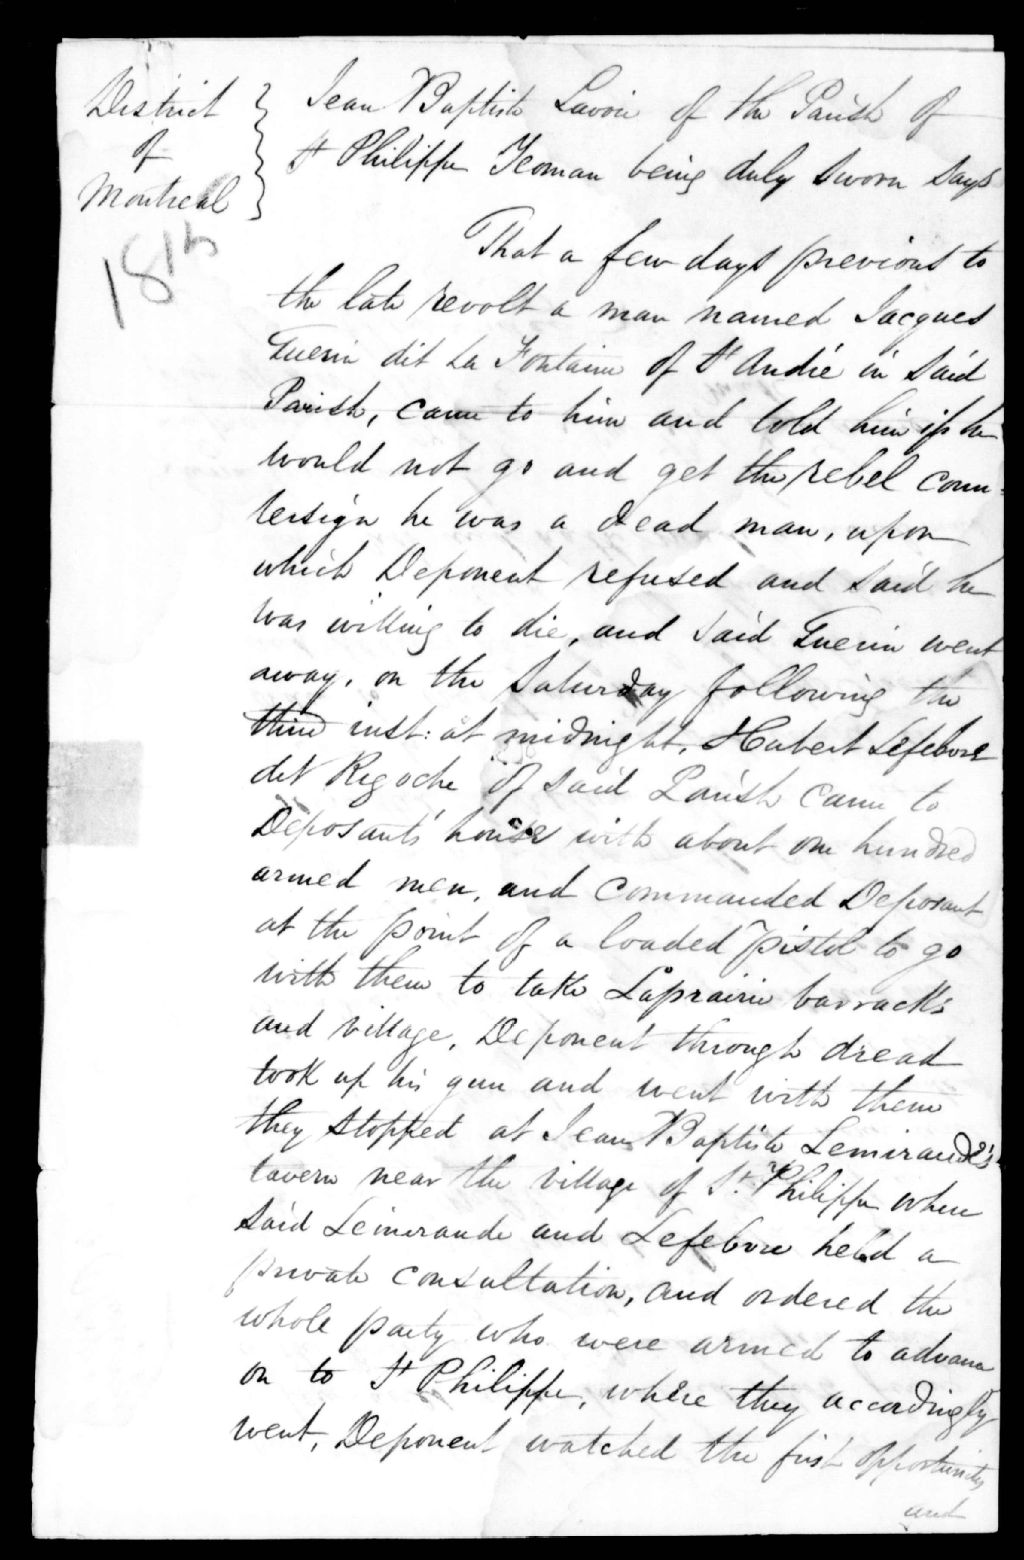 District
of
Montreal
18th
Jean Baptiste Lavoie of the Parish of
St Philippe Yeoman being duly sworn says
That a few days previous to
the late revolt a man named Jacques
Guerin dit La Fontaine of St André in said
Parish, came to him and told him if he
would not go and get the rebel coun-
tersign he was a dead man, upon
which Deponent refused and said he
was willing to die, and said Guerin went
away, on the Saturday following the
third inst: at midnight, Hubert Lefebvre
dit Rigoche of said Parish came to
Deposants' house with about one hundred
armed men, and commanded Deposant
at the point of a loaded pistol to go
with them to take Laprairie barracks
and village, Deponent through dread
took up his gun and went with them
they stopped at Jean Baptiste Lemirande's
tavern near the village of St. Philippe where
said Lemirande and Lefebvre held a
private consultation, and ordered the
whole party who were armed to advance
on to St Philippe, where they accordingly
went, Deponent watched the first opportunity
and